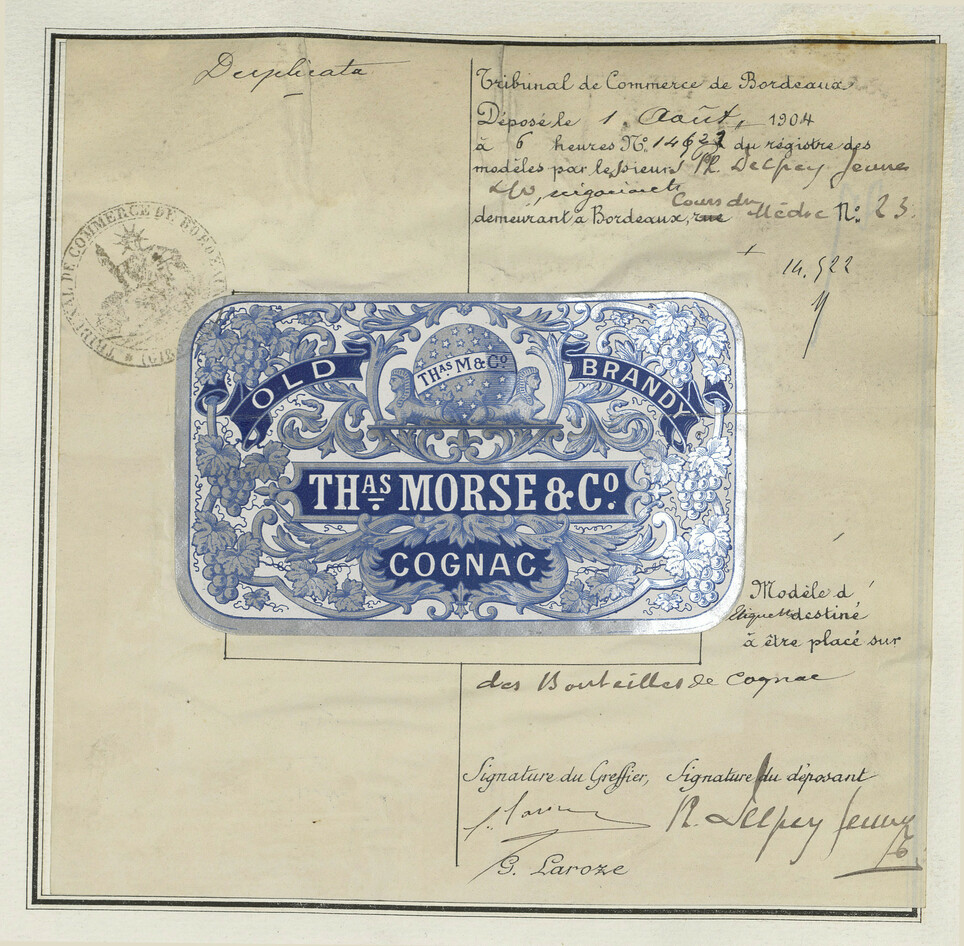 Duplicata
Tribunal de Commerce de Bordeaux
Déposé le 1. Août, 1904
à 6 heures No. du régistre des
modèles par le Sieurs Delpey Jeune
négociants
Cours du
demeurant à Bordeaux, rue Médoc No. 23.
14.522
TRIBUNAL DE COMMERCE DE BORDEAUX
OLD
THAS M & CO
BRANDY
THAS MORSE & CO.
COGNAC
Modèle d'
Etiquette destiné
à être placé sur
des Bouteilles de Cognac
Signature du Greffier, Signature du déposant
Delpey Jeune
G. Laroze